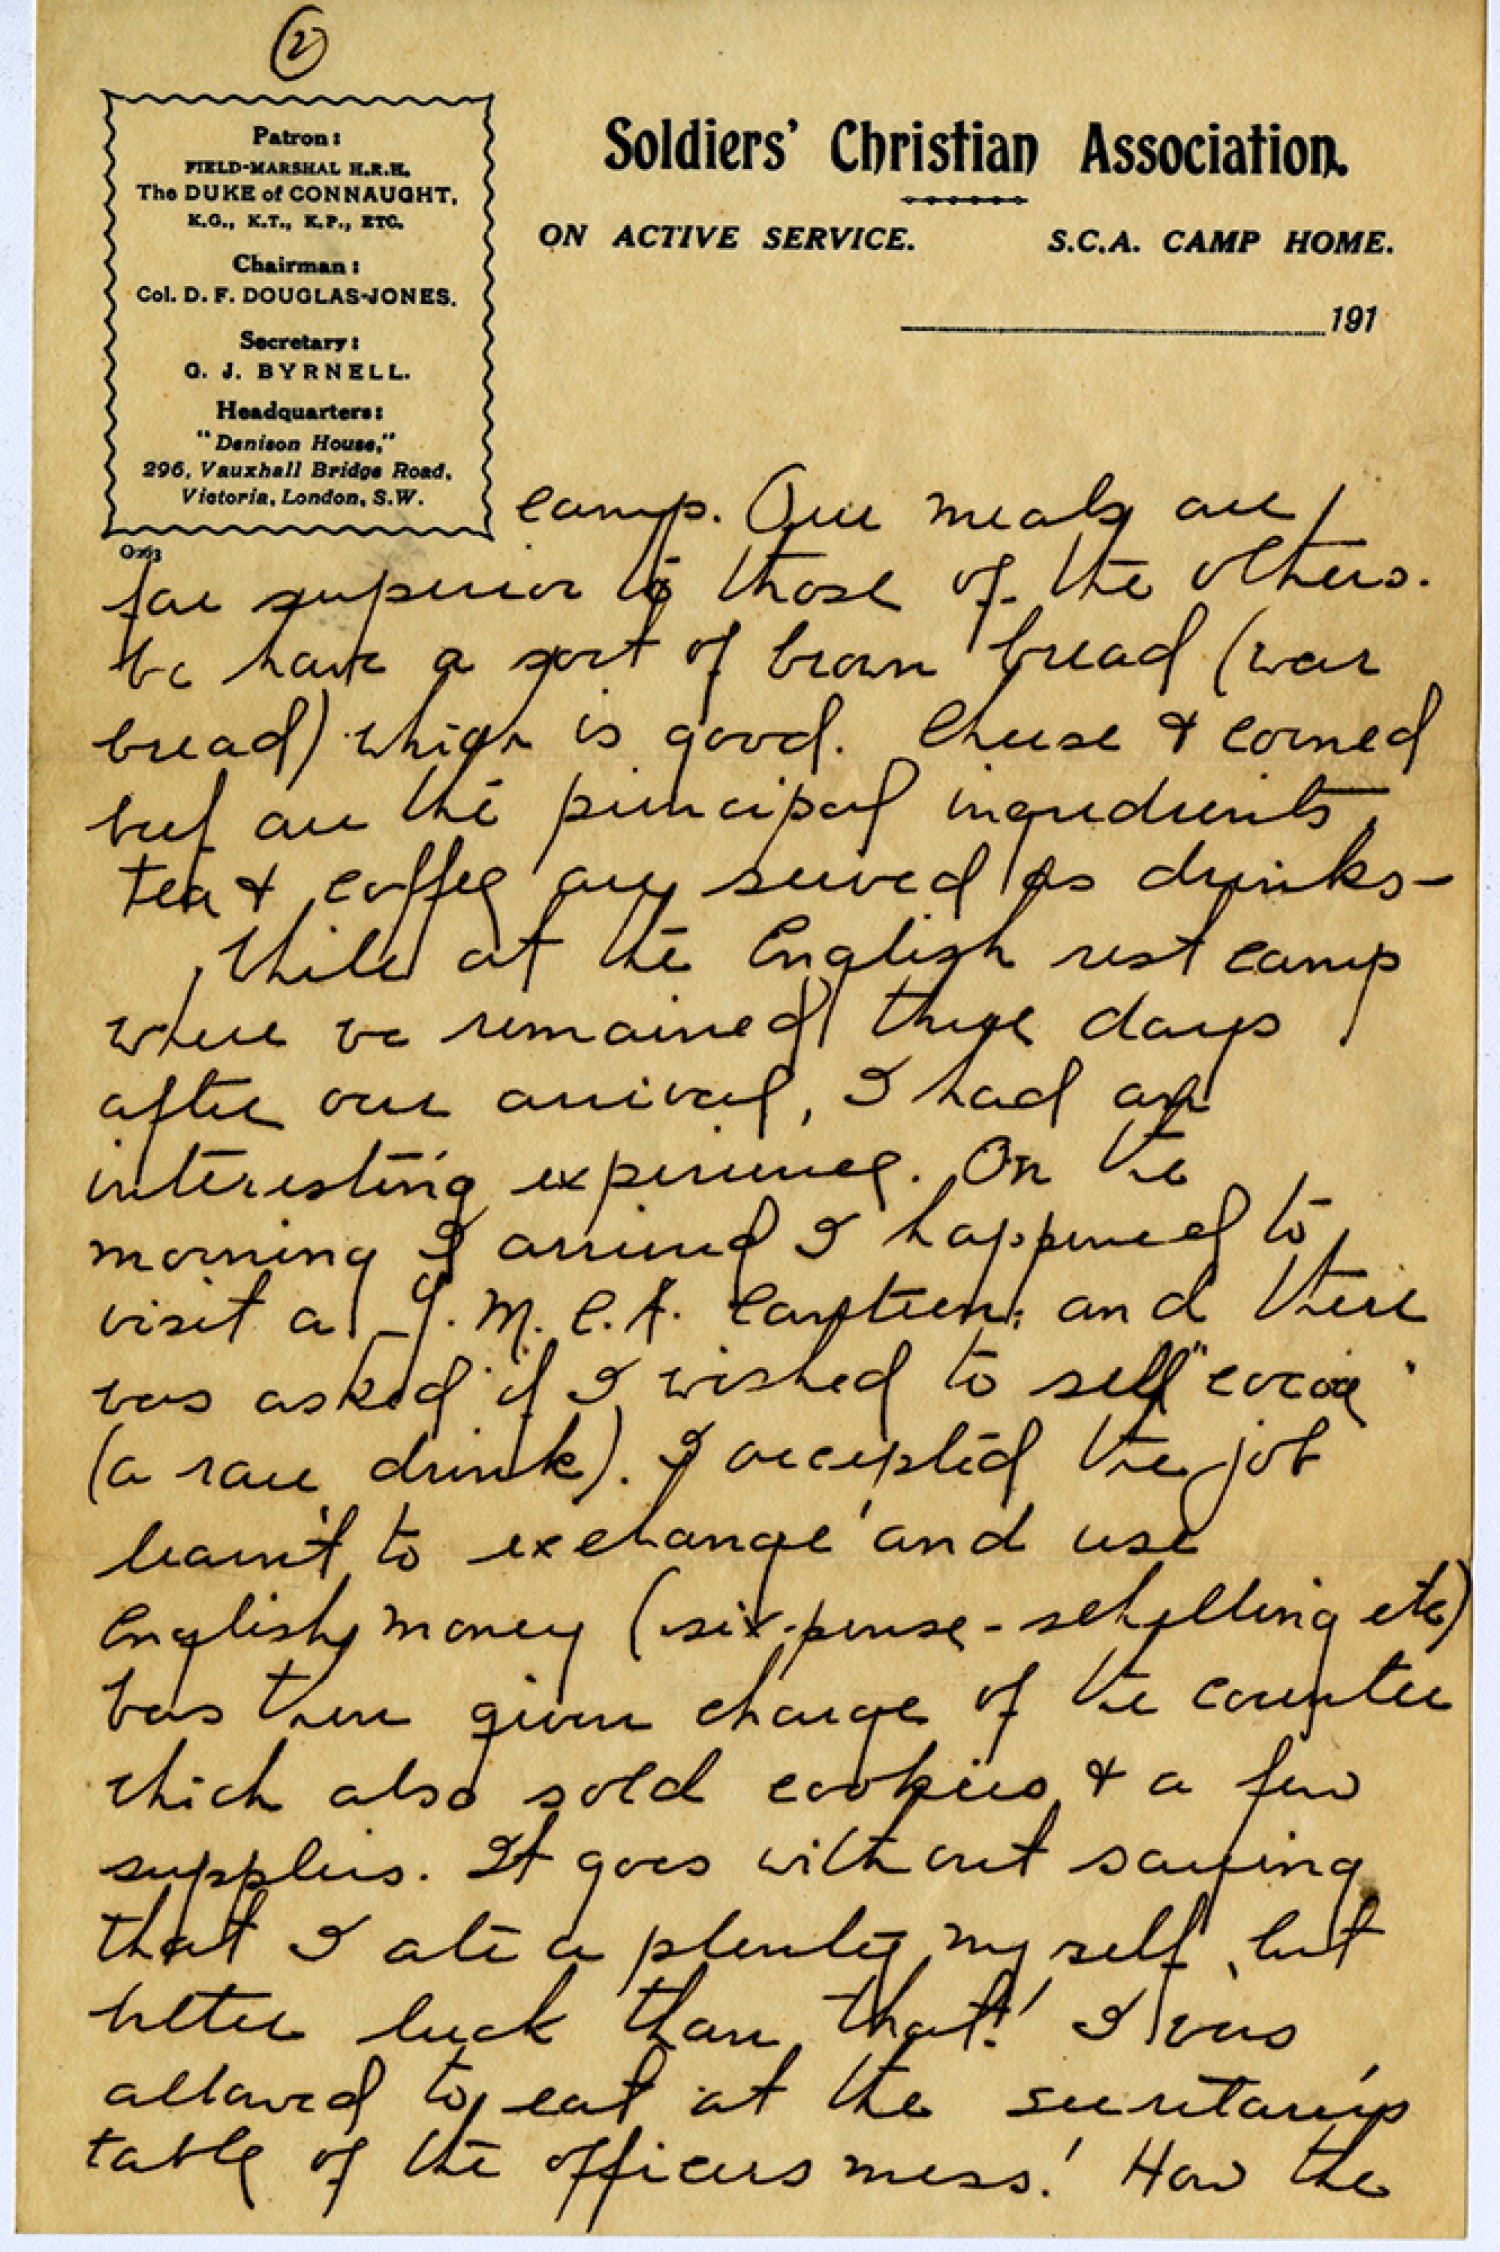 2
Patron:
FIELD-MARSHAL H.R.H.
The DUKE of CONNAUGHT,
K.G., K.T., K.P., ETC.
Chairman:
Col. D. F. DOUGLAS-JONES.
Secretary:
G. J. BYRNELL.
Headquarters:
"Denison House,"
296, Vauxhall Bridge Road,
Victoria, London, S.W.
O263
Soldiers' Christian Association.
ON ACTIVE SERVICE. S.C.A. CAMP HOME.
191
camp. Our meals are
far superior to those of the others.
We have a sort of brown bread (war
bread) which is good. Cheese & corned
beef are the principal ingredients,
tea & coffee are served as drinks –
While at the English rest camp
where we remained three days
after our arrival, I had an
interesting experience. On the
morning I arrived I happened to
visit a Y. M. C. A. Canteen; and there
was asked if I wished to sell "cocoa"
(a rare drink). I accepted the job
learnt to exchange and use
English money (six-pense - schilling etc)
Was then given charge of the counter
which also sold cookies & a few
supplies. It goes without saying
that I ate a plenty myself, but
better luck than that! I was
allowed to eat at the secretaries
table of the officers mess! How the